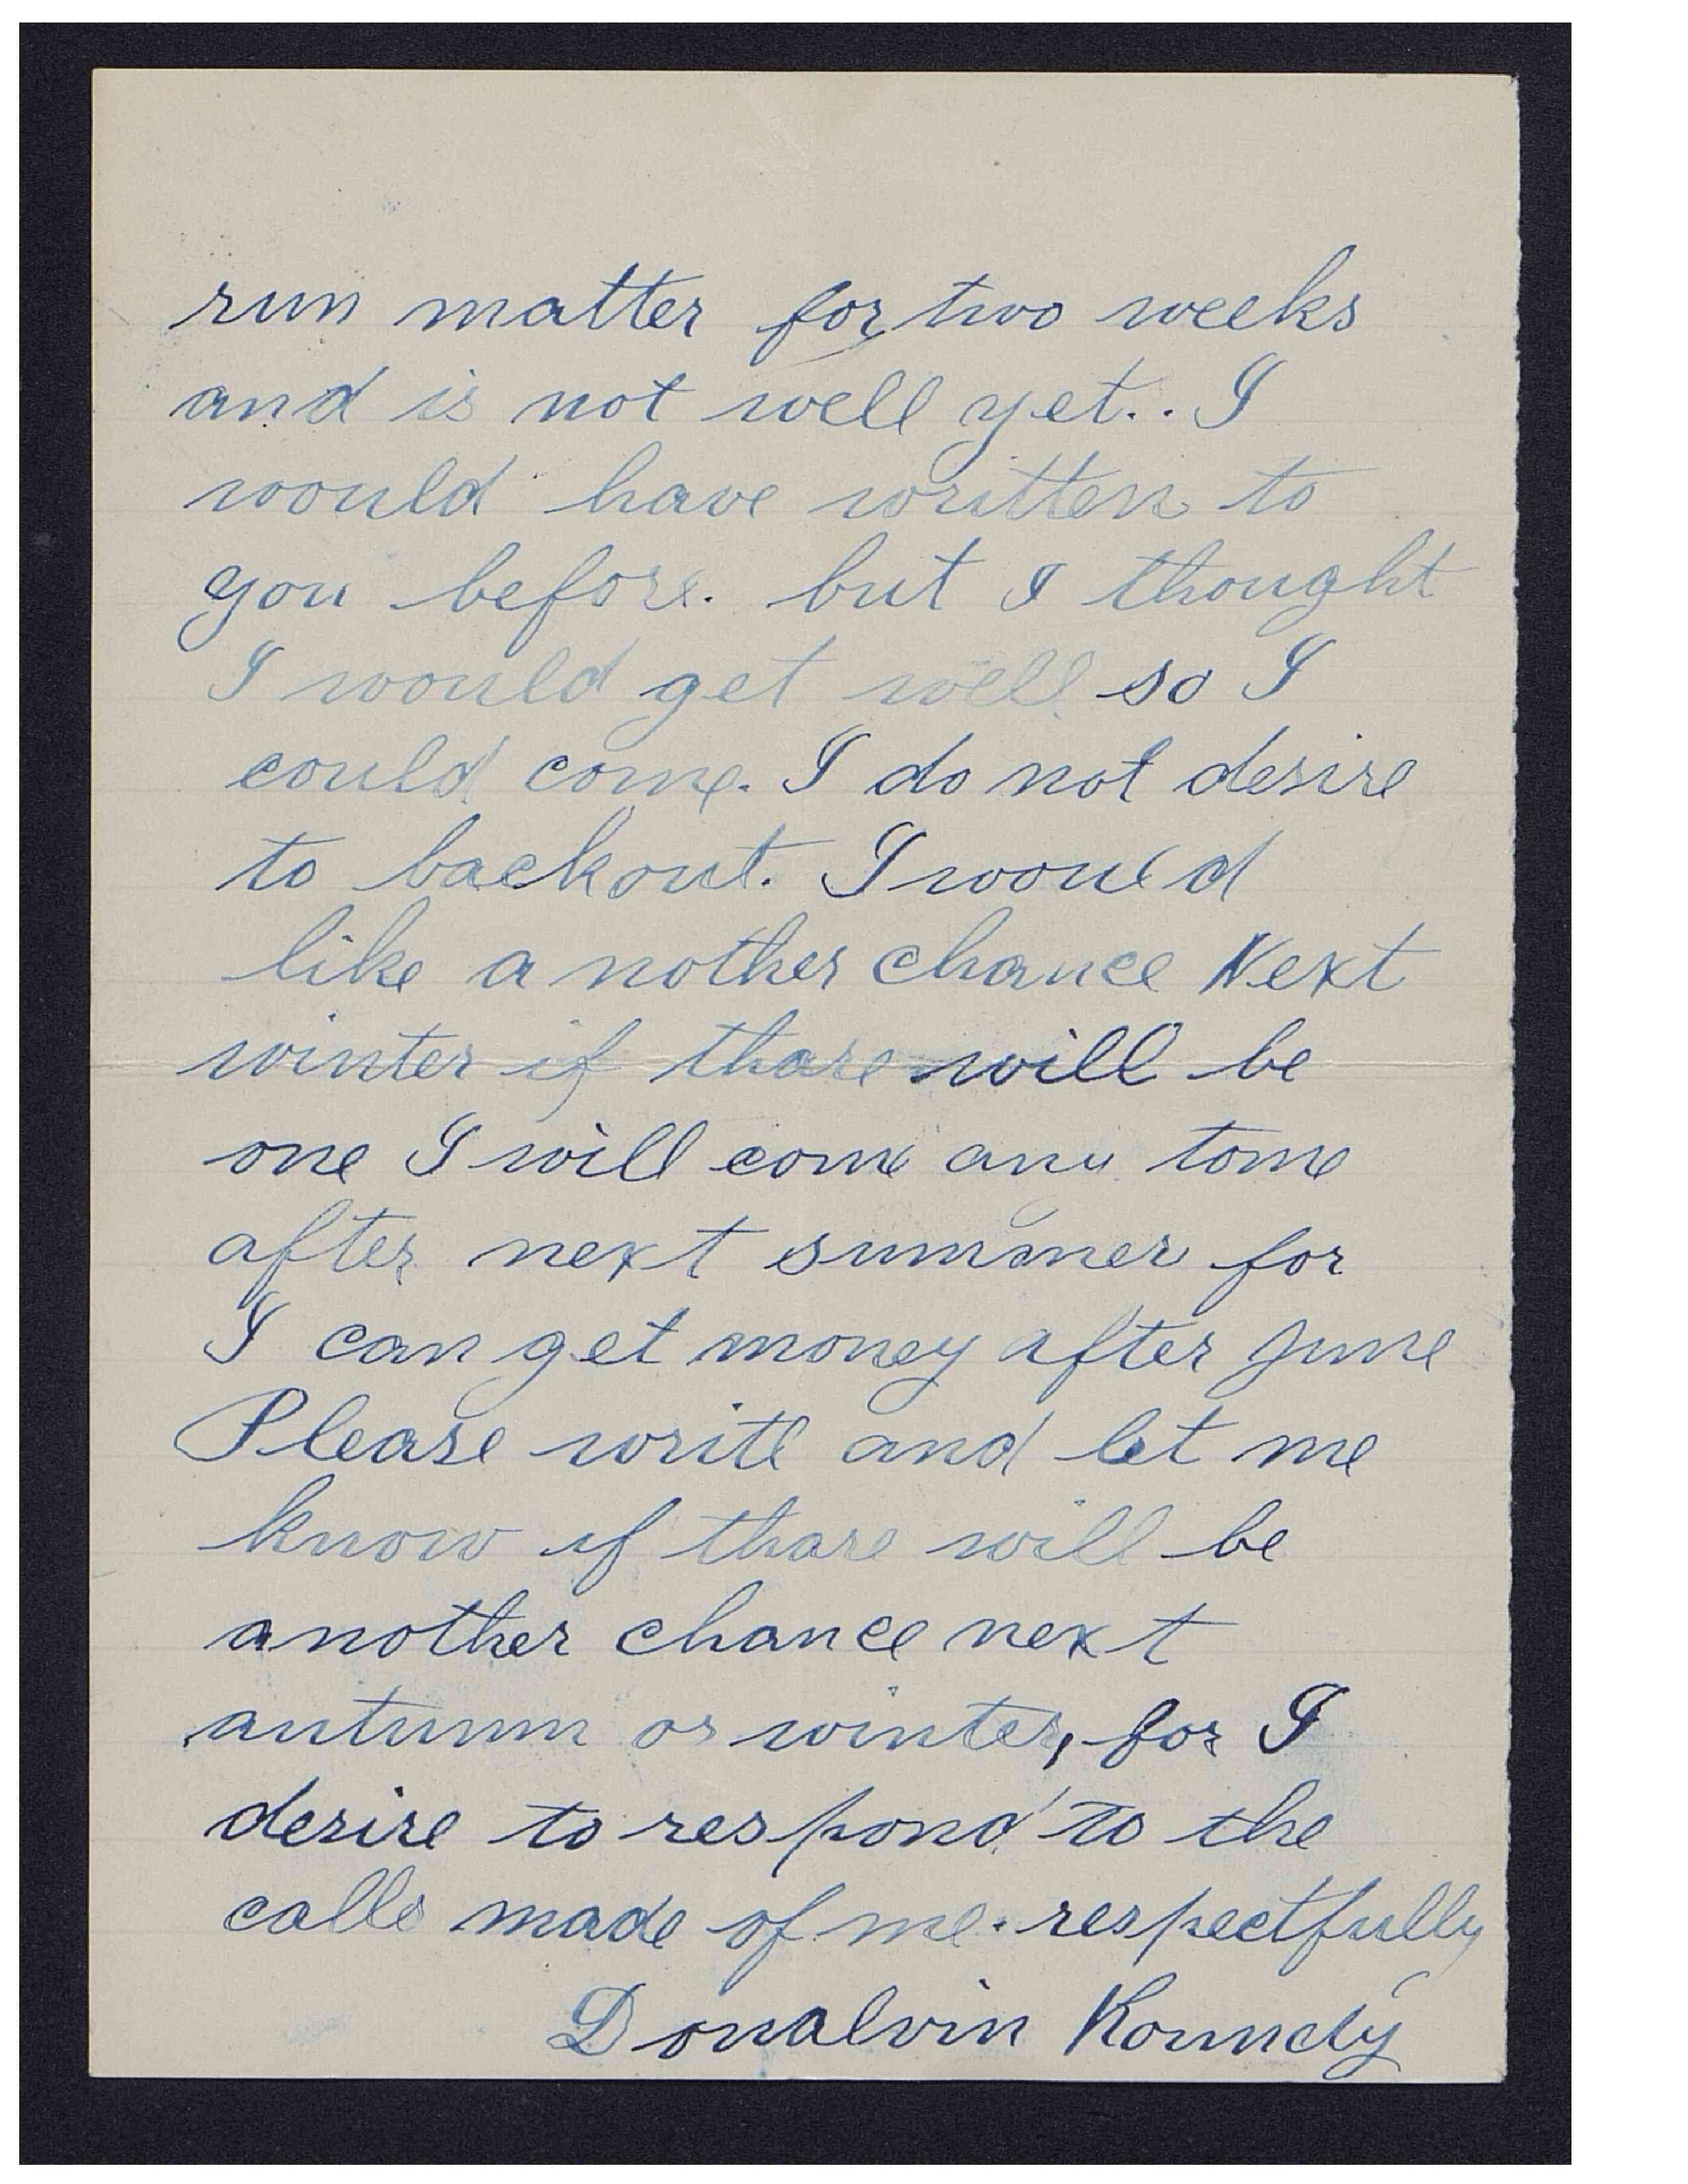 run matter for two weeks
and is not well yet.. I
would have written to
you before. but I thought
I would get well so I
could come. I do not desire
to backout. I would
like a nother chance Next
winter if thare will be
one I will come any tome
after next summer for
I can get money after June
Please write and let me
know if thare will be
another chance next
autumn or winter, for I
desire to respond to the
calls made of me. respectfully
Donalvin